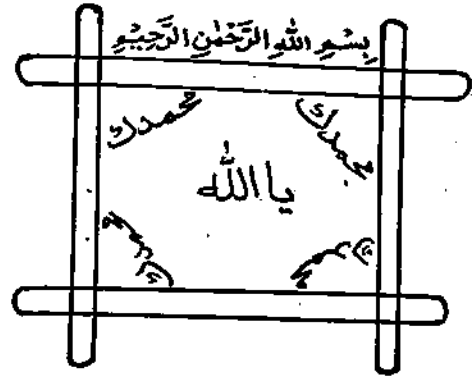 بِسْمِ اللهِ الرَّحْمٰنِ الرَّحِيْمِ
محمدك
محمدك
يا الله
محمدك
محمدك